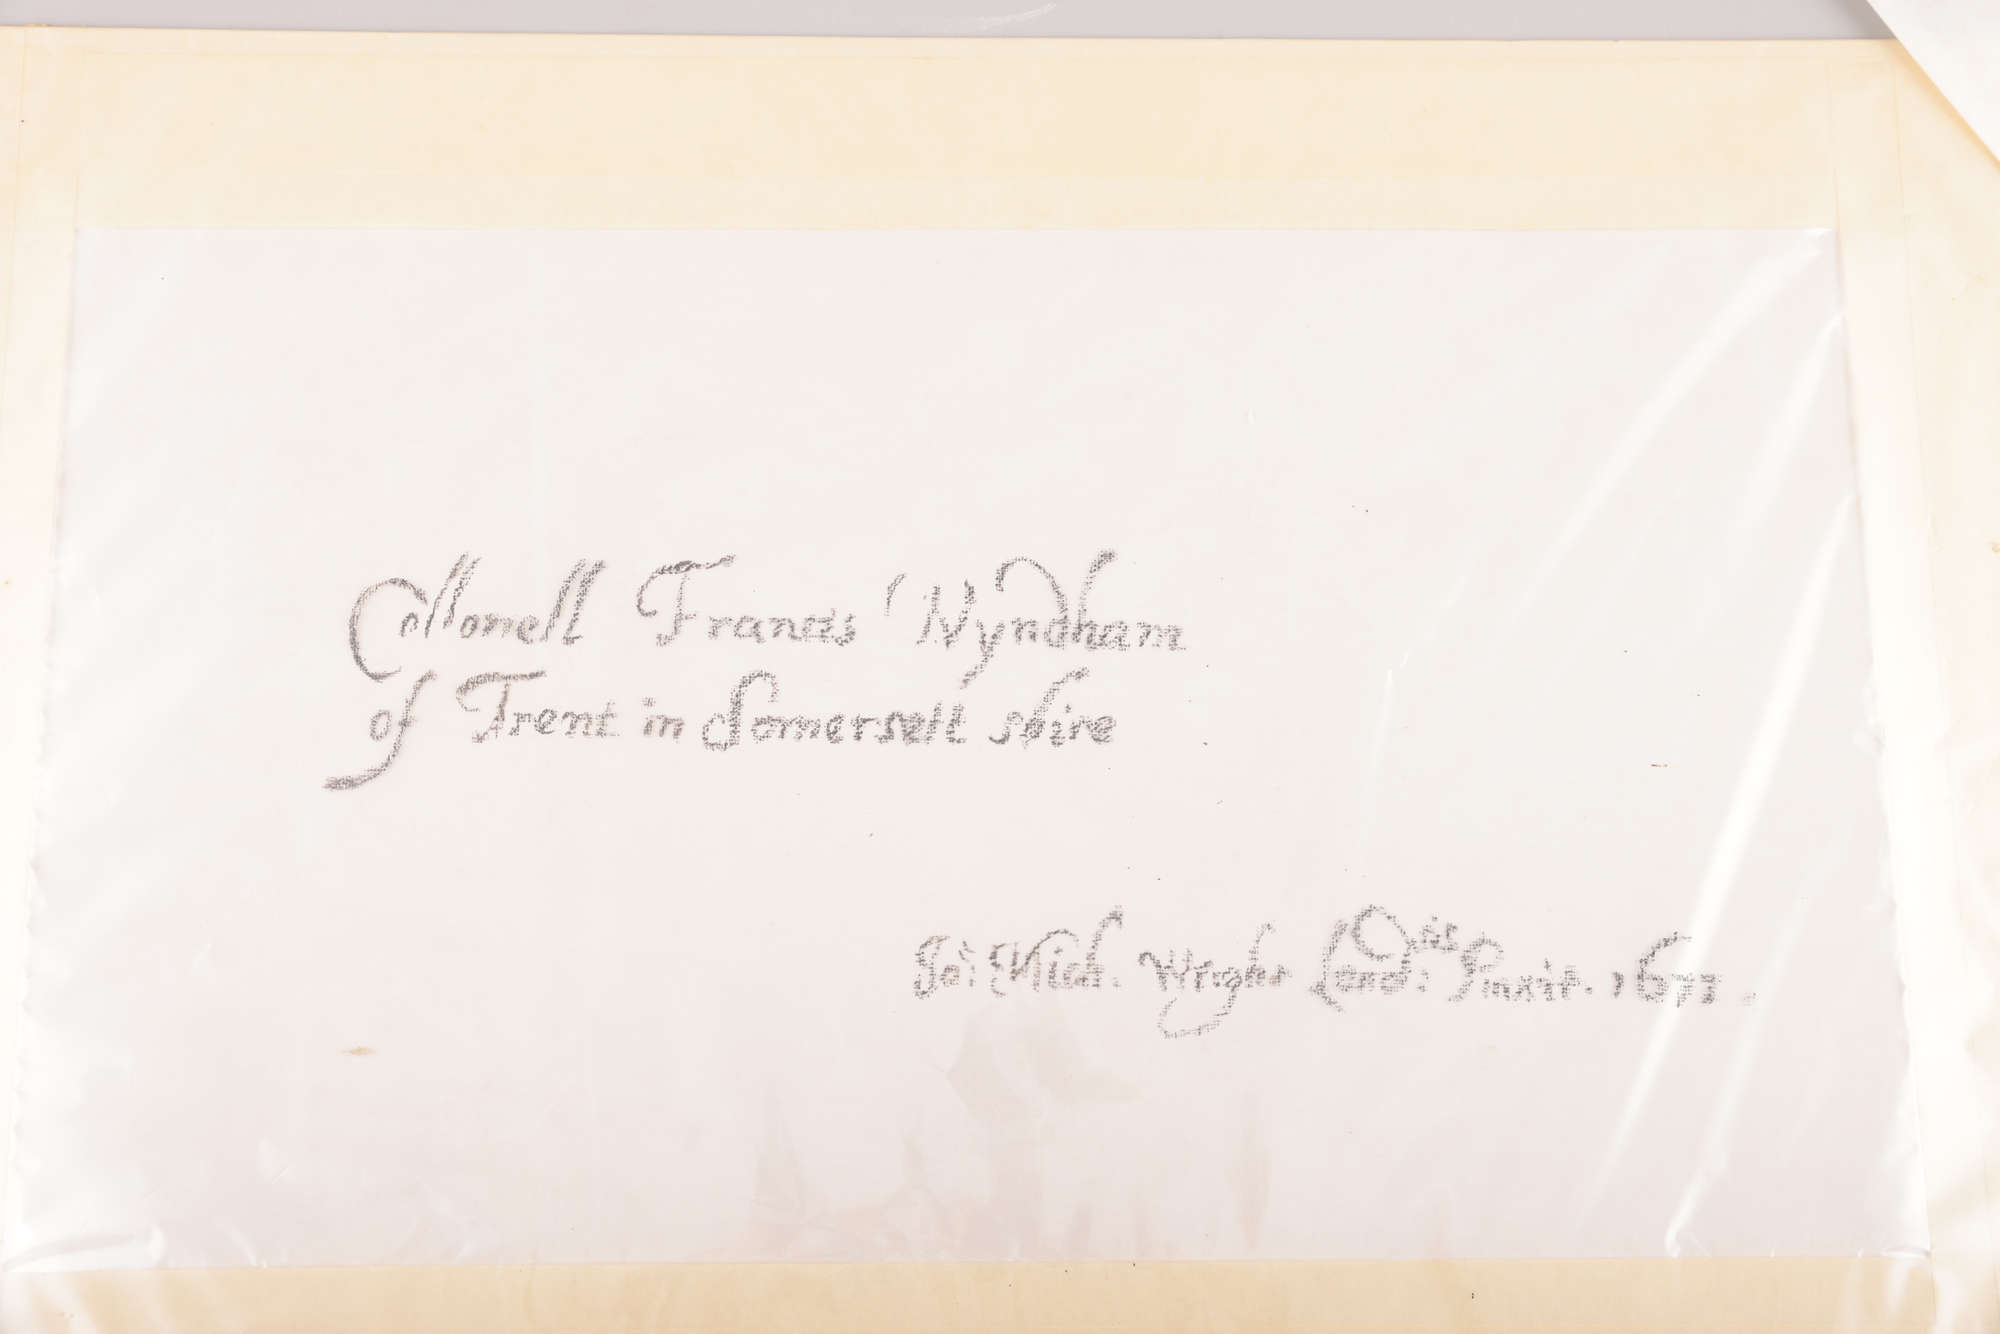 Collonell Francis Wyndham
of Trent in Somersett shire
Jo: Mich. Wright Lond:nis Pinxit. 1677.